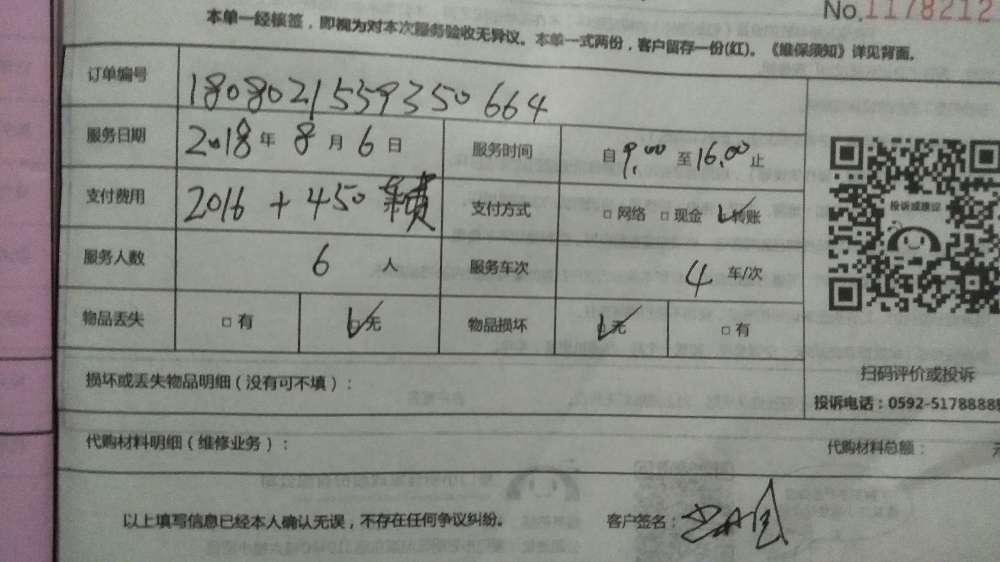 No.1178212
本单一经核签，即视为对本次服务验收无异议。本单一式两份，客户留存一份(红)。《维保须知》详见背面。
订单编号 180802155935 0664
服务日期 2018年 8月 6日 服务时间 自9.00至16.00止
支付费用 2016 + 450 费 支付方式 □网络 □现金 转账
投诉或建议
服务人数 6 人 服务车次 4 车/次
物品丢失 □有 无 物品损坏 无 □有
扫码评价或投诉
损坏或丢失物品明细（没有可不填）：
投诉电话：0592-5178888
代购材料明细（维修业务）： 代购材料总额：
以上填写信息已经本人确认无误，不存在任何争议纠纷。 客户签名：